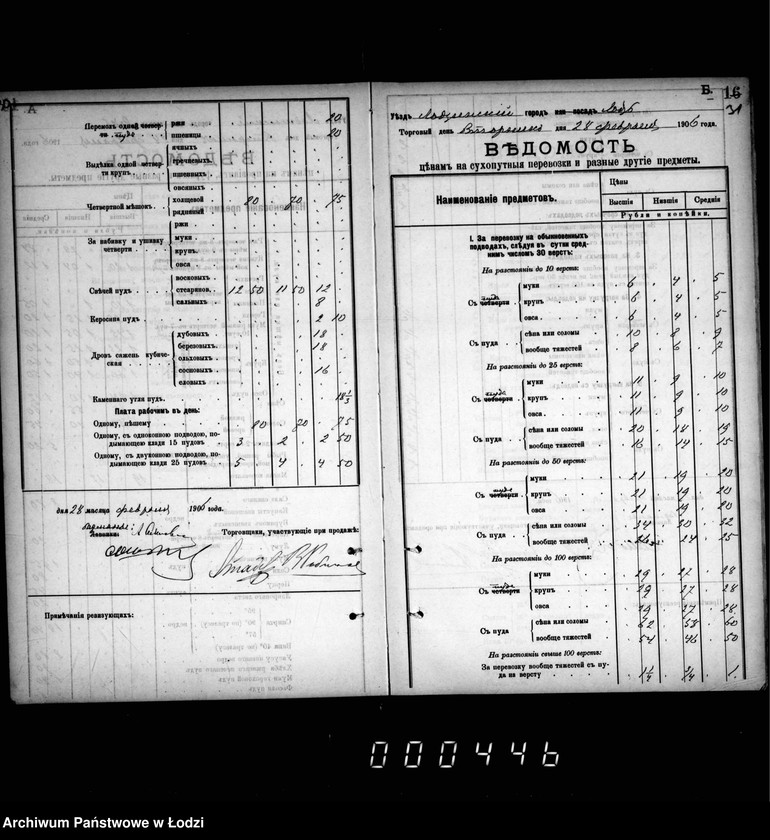 А
Перемолъ одной четверти пуда
ржи 20
пшеницы 20
Выдѣлка одной четверти крупъ
ячныхъ
гречневыхъ
пшенныхъ
овсяныхъ
Четвертной мѣшокъ
холщевой 80 70 75
рядниный
За набивку и ушивку четверти
ржи
муки
крупъ
овса
Свѣчей пудъ
восковыхъ
стеарінов. 12 50 11 50 12
сальныхъ 8
Керосина пудъ 2 10
Дровъ сажень кубическая
дубовыхъ 18
березовыхъ 18
ольховыхъ
сосновыхъ 16
еловыхъ
Каменнаго угля пудъ 18 1/3
Плата рабочимъ въ день:
Одному, пѣшему 80 70 75
Одному, съ одноконною подводою, подымающею клади 15 пудовъ 3 2 2 50
Одному, съ двуконною подводою, подымающею клади 25 пудовъ 5 4 4 50
дня 28 мѣсяца февраля 1906 года.
Торговцами, участвующіе при продажѣ:
Примѣчанія ревизующихъ:
Б. 16
31
Уѣздъ Лодзинскій городъ или посадъ Лодзь
Торговый день Вторникъ дня 28 февраля 1906 года.
ВѢДОМОСТЬ
цѣнамъ на сухопутныя перевозки и разные другіе предметы.
Наименованіе предметовъ.
Цѣны
Высшія Низшія Среднія
Рубли и копѣйки.
I. За перевозку на обыкновенныхъ подводахъ, слѣдуя въ сутки среднимъ числомъ 30 верстъ:
На разстояніи до 10 верстъ:
Съ четверти пуда
муки 6 4 5
крупъ 6 4 5
овса 6 4 5
Съ пуда
сѣна или соломы 10 8 9
вообще тяжестей 8 6 7
На разстояніи до 25 верстъ:
Съ четверти пуда
муки 11 9 10
крупъ 11 9 10
овса 11 9 10
Съ пуда
сѣна или соломы 20 14 19
вообще тяжестей 16 14 15
На разстояніи до 50 верстъ:
Съ четверти пуда
муки 21 19 20
крупъ 21 19 20
овса 21 19 20
Съ пуда
сѣна или соломы 34 30 32
вообще тяжестей 26 24 25
На разстояніи до 100 верстъ:
Съ четверти пуда
муки 29 27 28
крупъ 29 27 28
овса 29 27 28
Съ пуда
сѣна или соломы 62 58 60
вообще тяжестей 54 46 50
На разстояніи свыше 100 верстъ:
За перевозку вообще тяжестей съ пуда на версту 1 1/4 3/4 1
000446
Archiwum Państwowe w Łodzi